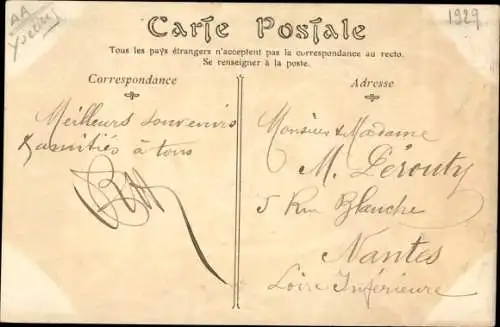 AA
Yvelines
1929
Carte Postale
Tous les pays étrangers n'acceptent pas la correspondance au recto.
Se renseigner à la poste.
Correspondance
Adresse
Meilleurs souvenirs
& amitiés à tous
Monsieur & Madame
M. Pérouty
5 Rue Blanche
Nantes
Loire Inférieure